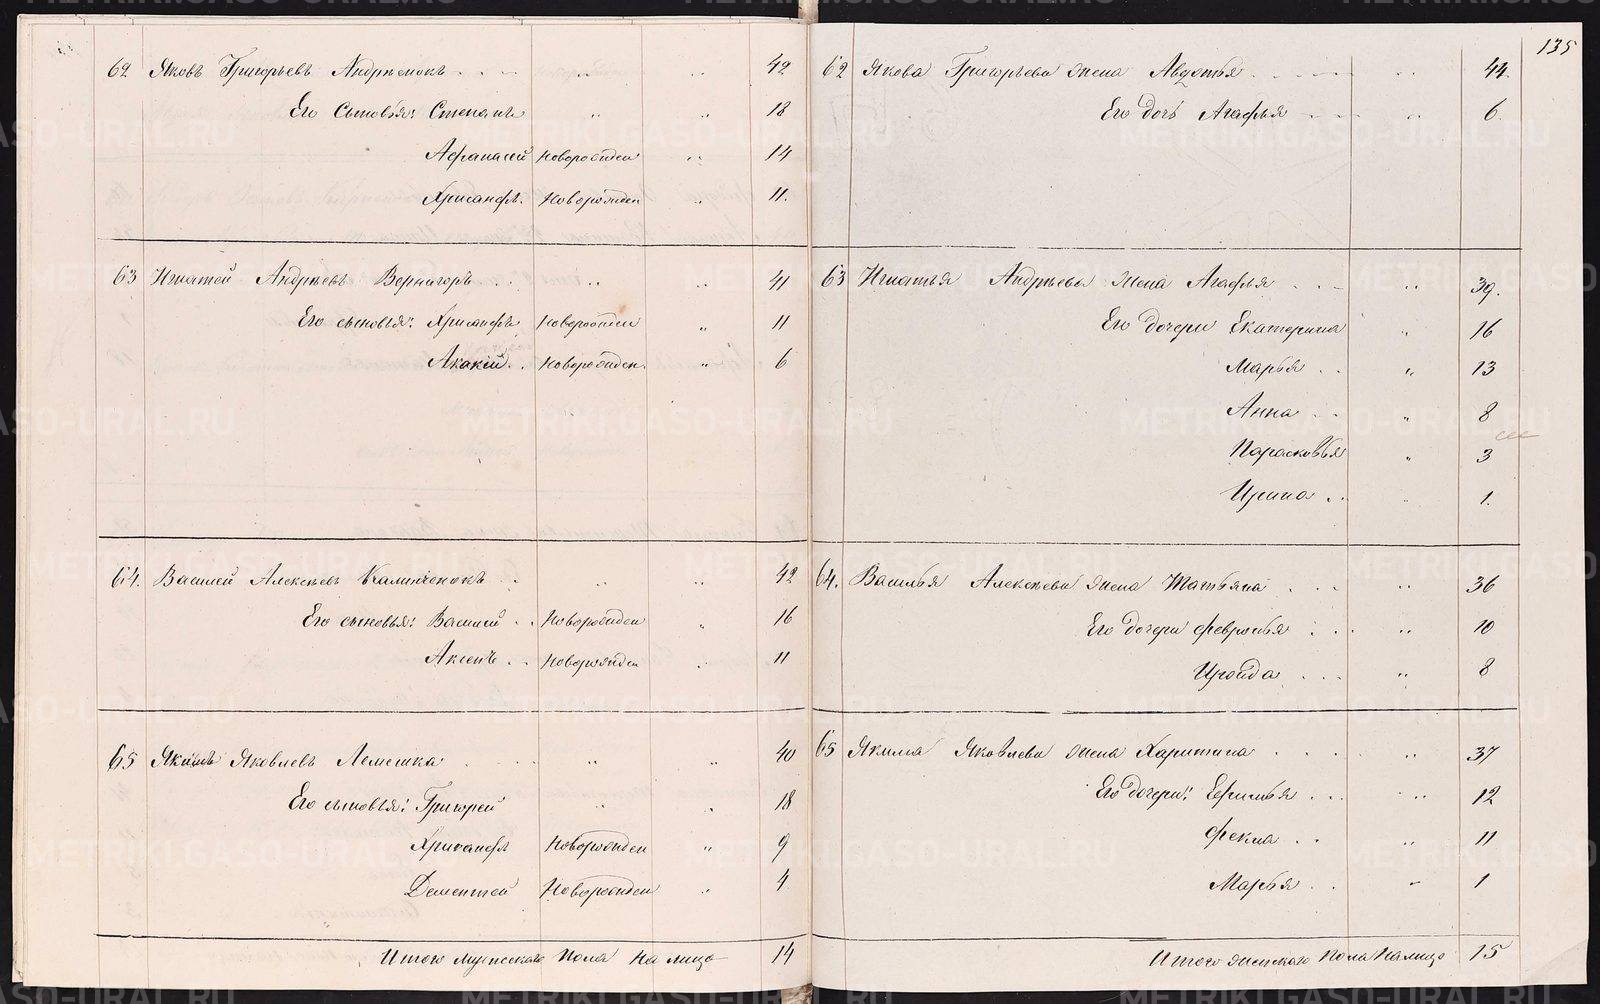 62 Яковъ Григорьевъ Андрѣмокъ . . . " 42
Его Сыновья: Степанъ " " 18
Афанасей Новорожден " 14
Хрисанфъ. Новорожден " 11.
63 Игнатей Андрѣевъ Вернигоръ . . " " 41
Его сыновья: Хрисанфъ Новорожден " 11
Акакій . Новорожден. " 6
64. Василей Алексѣевъ Калинченокъ . . " " 42
Его сыновья: Василей . . Новорожден " 16
Аксенъ . . Новорожден " 11
65 Якимъ Яковлевъ Лемешка . . . " " 40
Его сыновья: Григорей " " 18
Хрисанфъ Новорожден " 9
Дементей Новорожден " 4
Итого мужескаго Пола На лицо 14
135
62 Якова Григорьева жена Авдотья . . . " 44.
Его дочь Агафья . . . " 6
63 Игнатья Андрѣева жена Агафья . . . " 39.
Его дочери Екатерина " 16
Марья . . " 13
Анна . . " 8
Парасковья " 3
Ирина . . " 1.
64. Василья Алексѣева жена Татьяна . . . " 36
Его дочери Февронья . . . " 10
Ираида . . . " 8
65 Якима Яковлева жена Харитина . . . " 37
Его дочери: Ефимья . . . " 12
Фекла . . " 11
Марья . . " 1
Итого женскаго Пола На лицо 15
METRIKI.GASO-URAL.RU